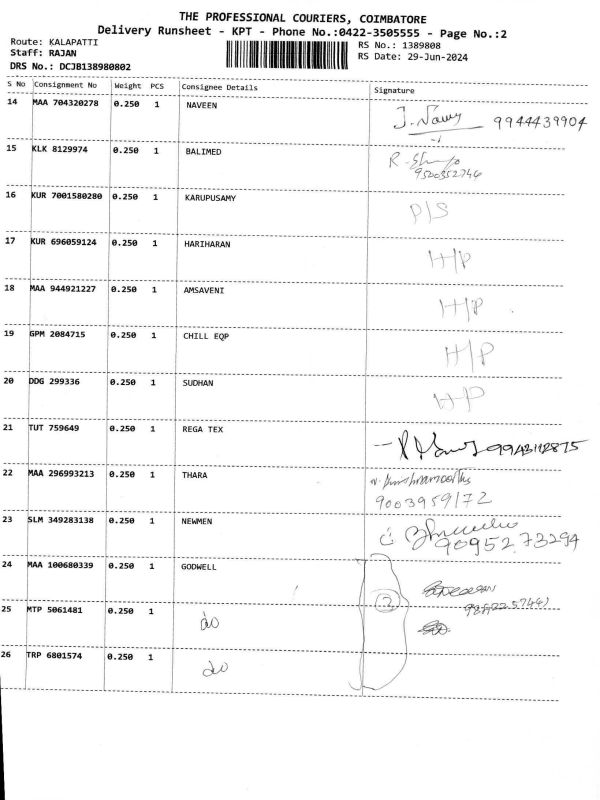 THE PROFESSIONAL COURIERS, COIMBATORE
Delivery Runsheet - KPT - Phone No.:0422-3505555 - Page No.:2
Route: KALAPATTI
Staff: RAJAN
DRS No.: DCJB138980802
RS No.: 1389808
RS Date: 29-Jun-2024
S No Consignment No Weight PCS Consignee Details Signature
14 MAA 704320278 0.250 1 NAVEEN 9944439904
15 KLK 8129974 0.250 1 BALIMED
9500352746
16 KUR 7001580280 0.250 1 KARUPUSAMY P/S
17 KUR 696059124 0.250 1 HARIHARAN H/P
18 MAA 944921227 0.250 1 AMSAVENI H/P
19 GPM 2084715 0.250 1 CHILL EQP H/P
20 DDG 299336 0.250 1 SUDHAN H/P
21 TUT 759649 0.250 1 REGA TEX
22 MAA 296993213 0.250 1 THARA
9003959172
23 SLM 349283138 0.250 1 NEWMEN
9095273294
24 MAA 100680339 0.250 1 GODWELL
2
25 MTP 5061481 0.250 1 do
26 TRP 6801574 0.250 1 do